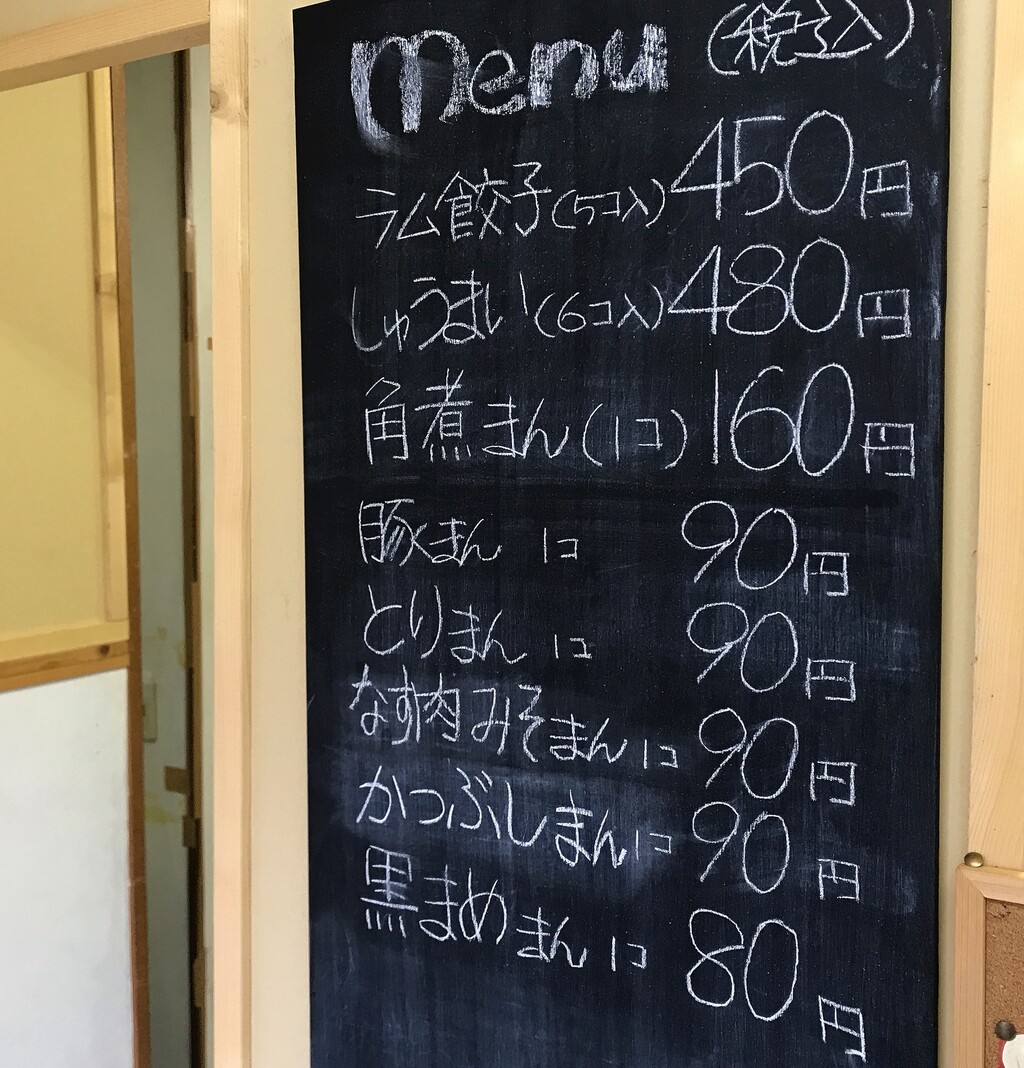 Menu (税込)
ラム餃子(5コ入) 450円
しゅうまい(6コ入) 480円
角煮まん(1コ) 160円
豚まん 1コ 90円
とりまん 1コ 90円
なす肉みそまん 1コ 90円
かつぶしまん 1コ 90円
黒まめまん 1コ 80円